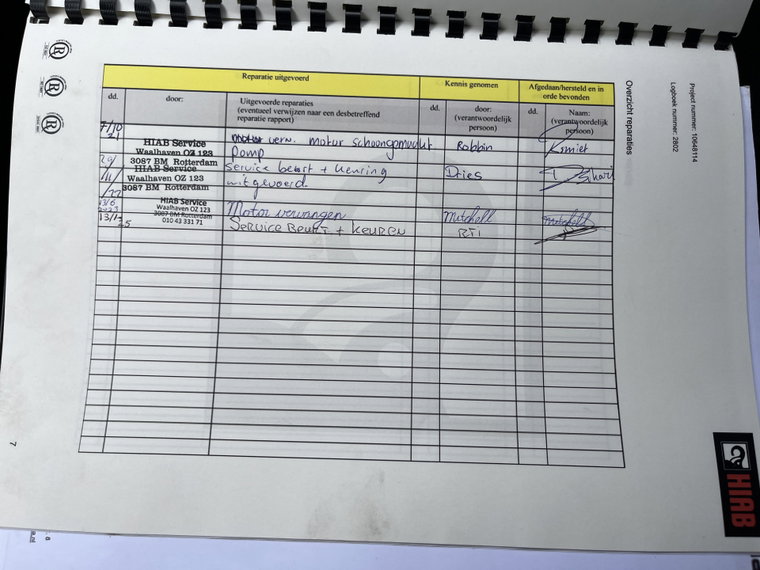 Project number: 10648114
Logboek nummer: 2802
Overzicht reparaties
Reparatie uitgevoerd
Kennis genomen
Afgedaan/hersteld en in
orde bevonden
dd.
door:
Uitgevoerde reparaties
(eventueel verwijzen naar een desbetreffend
reparatie rapport)
dd.
door:
(verantwoordelijk
persoon)
dd.
Naam:
(verantwoordelijk
persoon)
7/10
21
HIAB Service
Waalhaven OZ 123
3087 BM Rotterdam
motor verv. motor schoongemaakt
Pomp
Robbin
29/
11/
/22
HIAB Service
Waalhaven OZ 123
3087 BM Rotterdam
Service beurt + keuring
uitgevoerd.
Dries
13/6
2023
HIAB Service
Waalhaven OZ 123
3087 BM Rotterdam
010 43 331 71
Motor vervangen
Mitchell
Mitchell
13/1-
25
SERVICE BEURT + KEUREN
RTI
7
HIAB